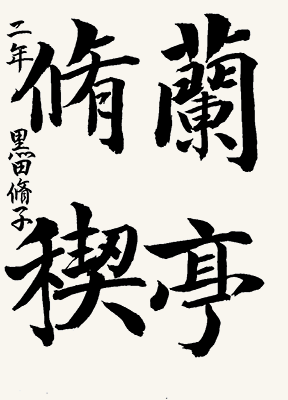 蘭亭
脩稧
二年 黒田脩子